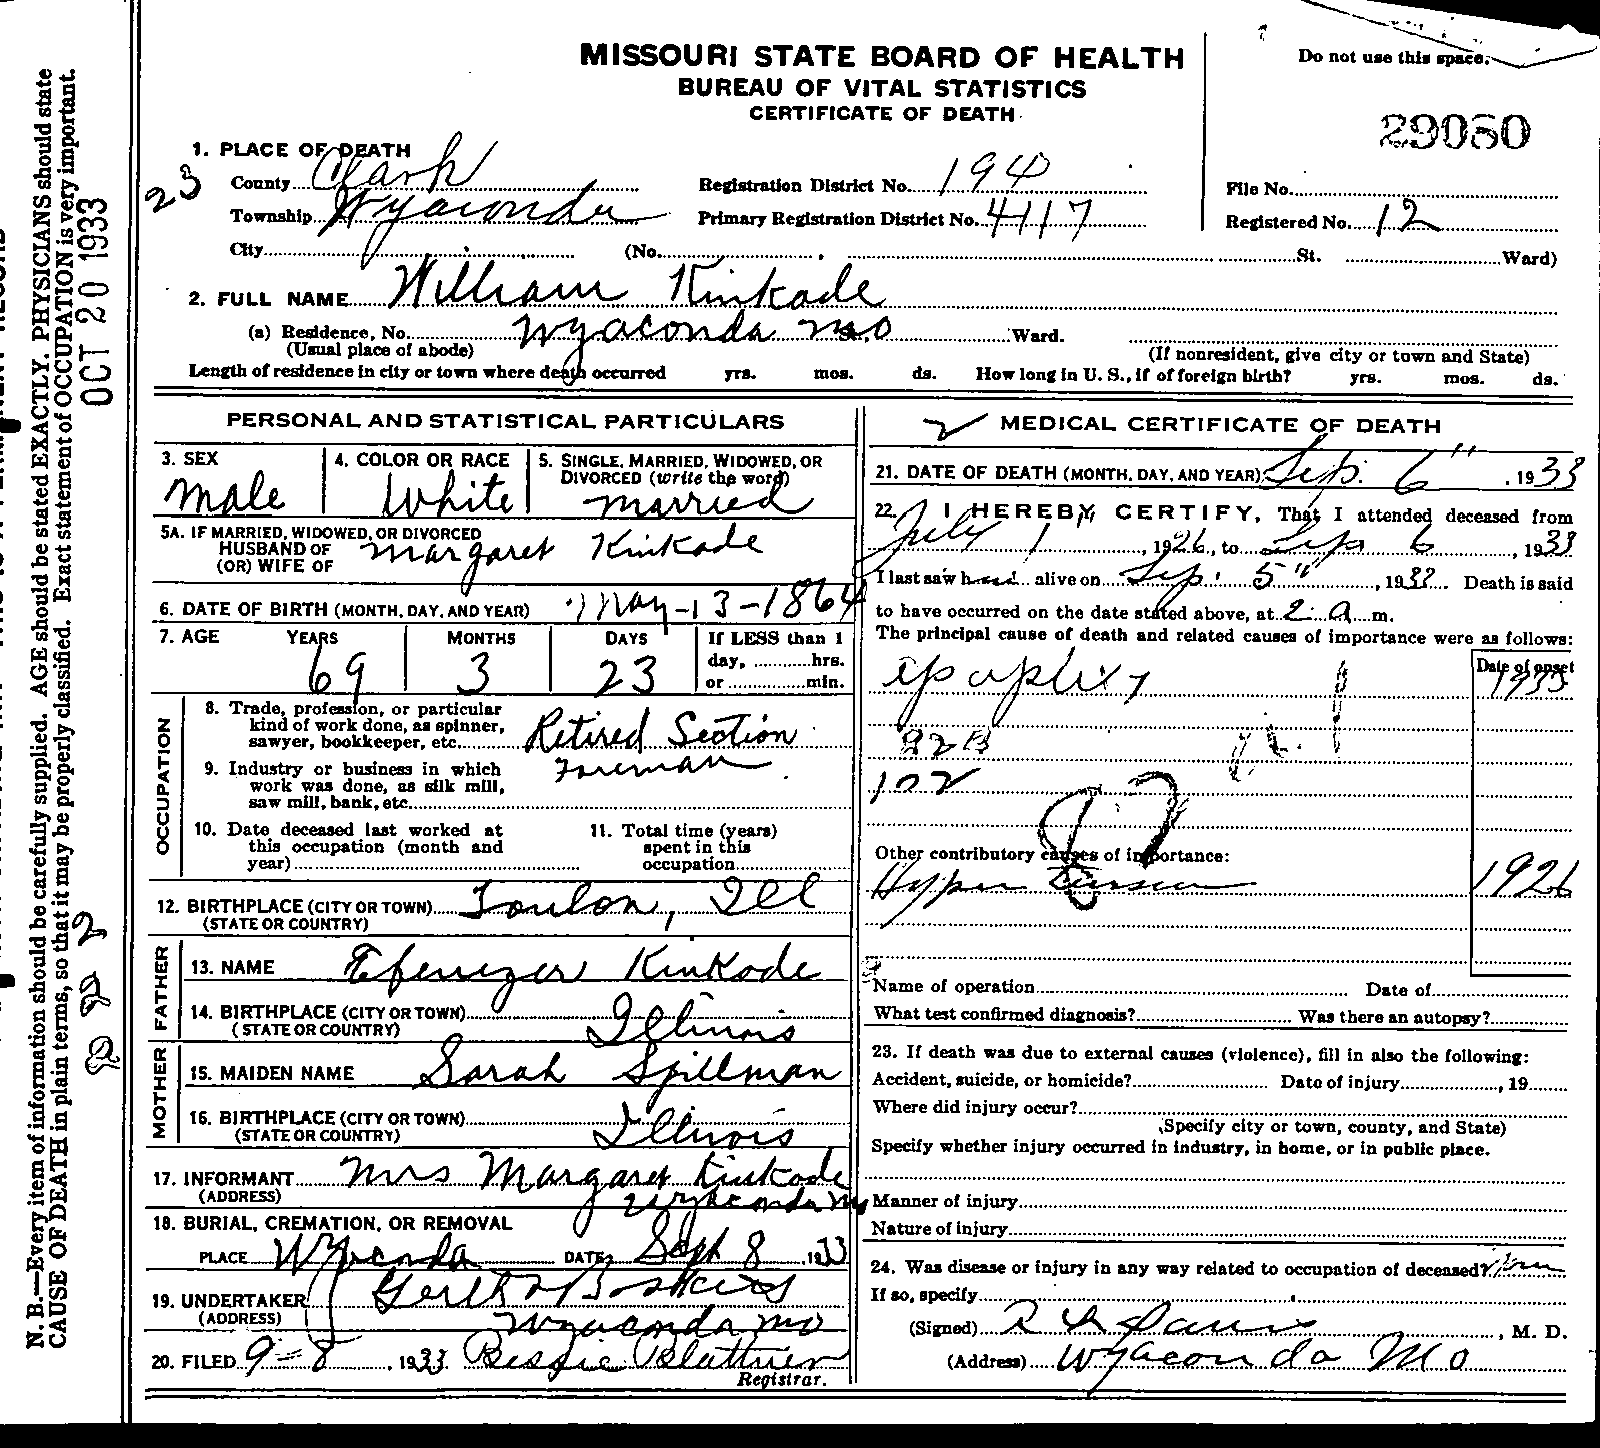 MISSOURI STATE BOARD OF HEALTH
BUREAU OF VITAL STATISTICS
CERTIFICATE OF DEATH
Do not use this space.
29080
1. PLACE OF DEATH
County Clark
Township Wyaconda
City (No. St. Ward)
23
Registration District No. 194
Primary Registration District No. 4117
File No.
Registered No. 12
2. FULL NAME William Kinkade
(a) Residence, No. Wyaconda Mo Ward.
(Usual place of abode) (If nonresident, give city or town and State)
Length of residence in city or town where death occurred yrs. mos. ds. How long in U. S., if of foreign birth? yrs. mos. ds.
PERSONAL AND STATISTICAL PARTICULARS
3. SEX
Male
4. COLOR OR RACE
White
5. SINGLE, MARRIED, WIDOWED, OR
DIVORCED (write the word)
Married
5A. IF MARRIED, WIDOWED, OR DIVORCED
HUSBAND OF Margaret Kinkade
(OR) WIFE OF
6. DATE OF BIRTH (MONTH, DAY, AND YEAR) May-13-1864
7. AGE YEARS MONTHS DAYS If LESS than 1
day, hrs.
or min.
69 3 23
OCCUPATION
8. Trade, profession, or particular
kind of work done, as spinner,
sawyer, bookkeeper, etc. Retired Section
Foreman
9. Industry or business in which
work was done, as silk mill,
saw mill, bank, etc.
10. Date deceased last worked at
this occupation (month and
year)
11. Total time (years)
spent in this
occupation
12. BIRTHPLACE (CITY OR TOWN) Toulon, Ill
(STATE OR COUNTRY)
FATHER
13. NAME Ebenezer Kinkade
14. BIRTHPLACE (CITY OR TOWN)
(STATE OR COUNTRY) Illinois
MOTHER
15. MAIDEN NAME Sarah Spillman
16. BIRTHPLACE (CITY OR TOWN)
(STATE OR COUNTRY) Illinois
17. INFORMANT Mrs Margaret Kinkade
(ADDRESS) Wyaconda Mo
18. BURIAL, CREMATION, OR REMOVAL
PLACE Wyaconda DATE Sept 8 1933
19. UNDERTAKER
(ADDRESS) Wyaconda Mo
20. FILED 9-8, 1933 Bessie Blattner
Registrar.
MEDICAL CERTIFICATE OF DEATH
21. DATE OF DEATH (MONTH, DAY, AND YEAR) Sep. 6", 1933
22. I HEREBY CERTIFY, That I attended deceased from
July 1, 1926, to Sep 6, 1933
I last saw h alive on Sep. 5", 1933 Death is said
to have occurred on the date stated above, at 2 a m.
The principal cause of death and related causes of importance were as follows:
Date of onset
apoplexy 1933
82B
102
Other contributory causes of importance:
Hyper 1926
Name of operation Date of
What test confirmed diagnosis? Was there an autopsy?
23. If death was due to external causes (violence), fill in also the following:
Accident, suicide, or homicide? Date of injury , 19
Where did injury occur?
(Specify city or town, county, and State)
Specify whether injury occurred in industry, in home, or in public place.
Manner of injury
Nature of injury
24. Was disease or injury in any way related to occupation of deceased?
If so, specify
(Signed) , M. D.
(Address) Wyaconda Mo
N. B.—Every item of information should be carefully supplied. AGE should be stated EXACTLY. PHYSICIANS should state
CAUSE OF DEATH in plain terms, so that it may be properly classified. Exact statement of OCCUPATION is very important.
OCT 20 1933
222